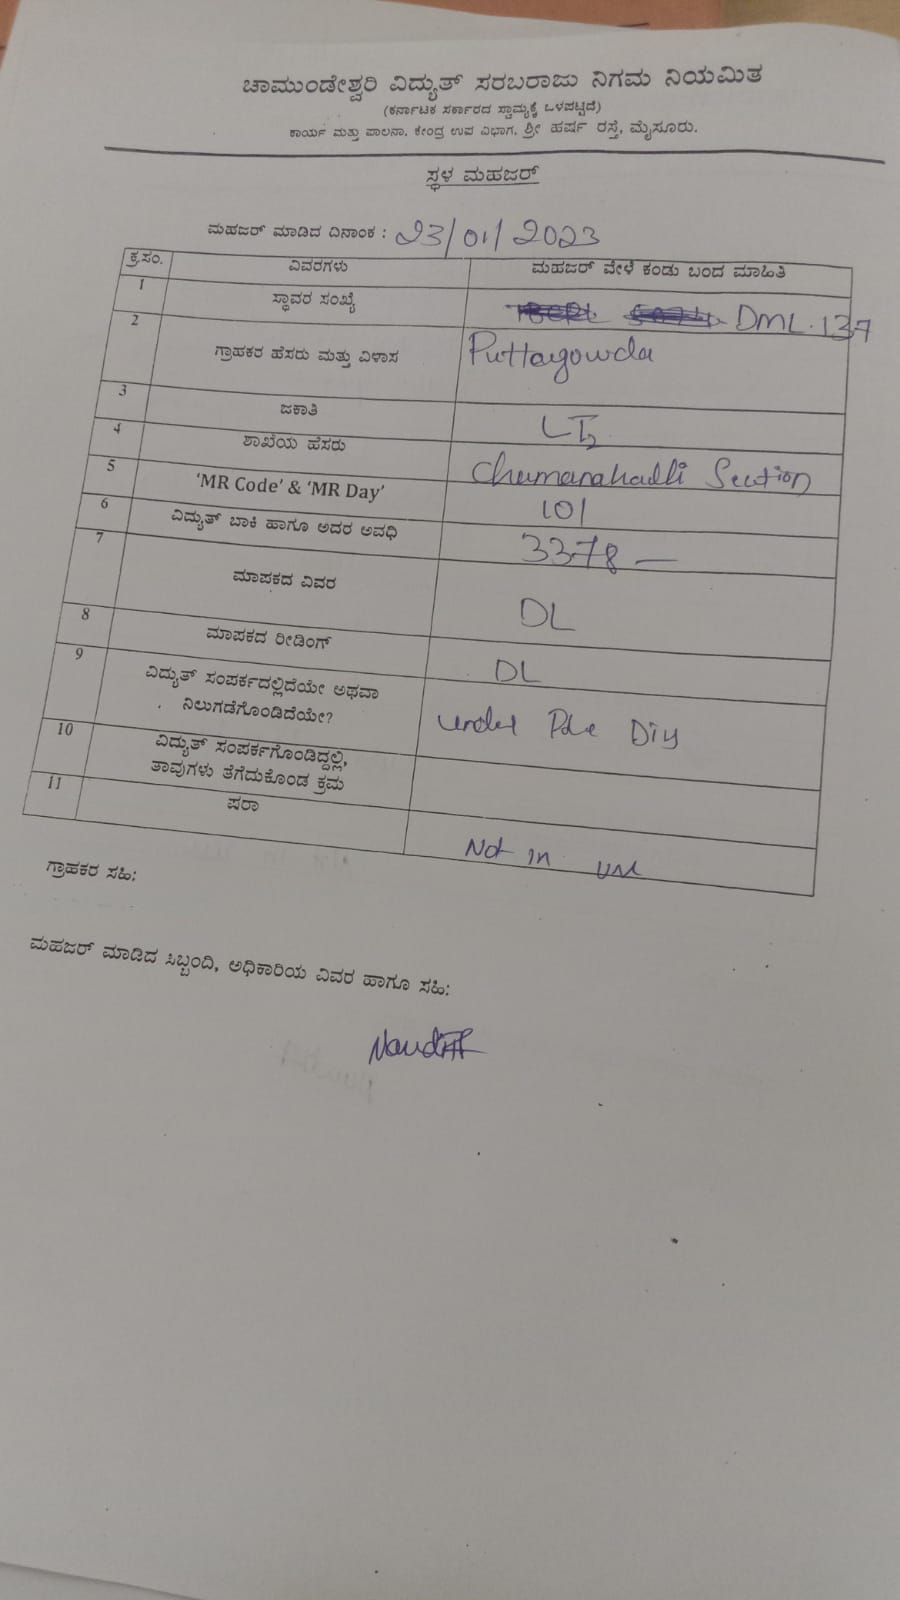 ಚಾಮುಂಡೇಶ್ವರಿ ವಿದ್ಯುತ್ ಸರಬರಾಜು ನಿಗಮ ನಿಯಮಿತ
(ಕರ್ನಾಟಕ ಸರ್ಕಾರದ ಸ್ವಾಮ್ಯಕ್ಕೆ ಒಳಪಟ್ಟಿದೆ)
ಕಾರ್ಯ ಮತ್ತು ಪಾಲನಾ, ಕೇಂದ್ರ ಉಪ ವಿಭಾಗ, ಶ್ರೀ ಹರ್ಷ ರಸ್ತೆ, ಮೈಸೂರು.
ಸ್ಥಳ ಮಹಜರ್
ಮಹಜರ್ ಮಾಡಿದ ದಿನಾಂಕ : 23/01/2023
ಕ್ರ.ಸಂ. ವಿವರಗಳು ಮಹಜರ್ ವೇಳೆ ಕಂಡು ಬಂದ ಮಾಹಿತಿ
1 ಸ್ಥಾವರ ಸಂಖ್ಯೆ DML.137
2 ಗ್ರಾಹಕರ ಹೆಸರು ಮತ್ತು ವಿಳಾಸ Puttagowda
3 ಜಕಾತಿ LT2
4 ಶಾಖೆಯ ಹೆಸರು Chamarahalli Section
5 'MR Code' & 'MR Day' 101
6 ವಿದ್ಯುತ್ ಬಾಕಿ ಹಾಗೂ ಅದರ ಅವಧಿ 3378 —
7 ಮಾಪಕದ ವಿವರ DL
8 ಮಾಪಕದ ರೀಡಿಂಗ್ DL
9 ವಿದ್ಯುತ್ ಸಂಪರ್ಕದಲ್ಲಿದೆಯೇ ಅಥವಾ
ನಿಲುಗಡೆಗೊಂಡಿದೆಯೇ? under Pole Dis
10 ವಿದ್ಯುತ್ ಸಂಪರ್ಕಗೊಂಡಿದ್ದಲ್ಲಿ,
ತಾವುಗಳು ತೆಗೆದುಕೊಂಡ ಕ್ರಮ
11 ಷರಾ Not in use
ಗ್ರಾಹಕರ ಸಹಿ:
ಮಹಜರ್ ಮಾಡಿದ ಸಿಬ್ಬಂದಿ, ಅಧಿಕಾರಿಯ ವಿವರ ಹಾಗೂ ಸಹಿ: